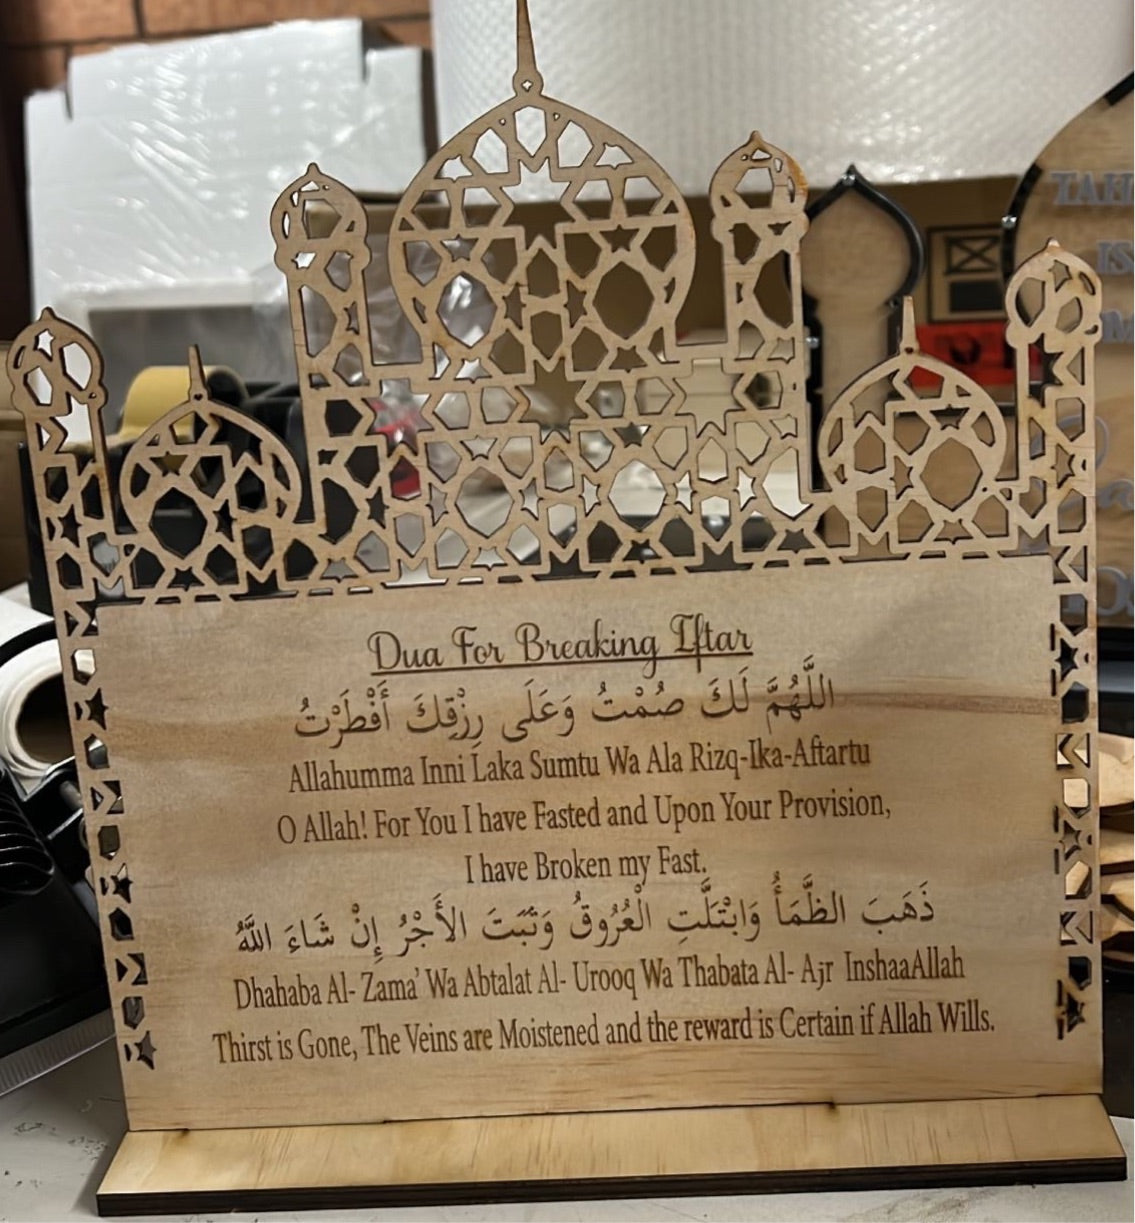 Dua For Breaking Iftar
اللَّهُمَّ لَكَ صُمْتُ وَعَلَى رِزْقِكَ أَفْطَرْتُ
Allahumma Inni Laka Sumtu Wa Ala Rizq-Ika-Aftartu
O Allah! For You I have Fasted and Upon Your Provision,
I have Broken my Fast.
ذَهَبَ الظَّمَأُ وَابْتَلَّتِ الْعُرُوقُ وَثَبَتَ الأَجْرُ إِنْ شَاءَ اللَّهُ
Dhahaba Al- Zama' Wa Abtalat Al- Urooq Wa Thabata Al- Ajr InshaaAllah
Thirst is Gone, The Veins are Moistened and the reward is Certain if Allah Wills.